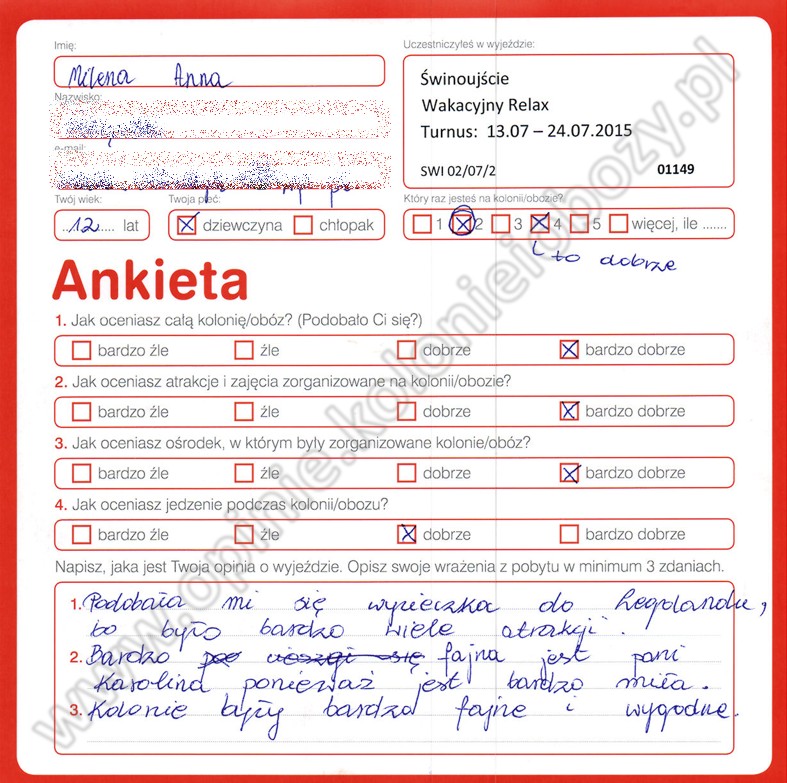 Imię:
Milena Anna
Nazwisko:
e-mail:
Twój wiek:
12 lat
Twoja płeć:
dziewczyna chłopak
Uczestniczyłeś w wyjeździe:
Świnoujście
Wakacyjny Relax
Turnus: 13.07 – 24.07.2015
SWI 02/07/2 01149
Który raz jesteś na kolonii/obozie?
1 2 3 4 5 więcej, ile .......
to dobrze
Ankieta
1. Jak oceniasz całą kolonię/obóz? (Podobało Ci się?)
bardzo źle źle dobrze bardzo dobrze
2. Jak oceniasz atrakcje i zajęcia zorganizowane na kolonii/obozie?
bardzo źle źle dobrze bardzo dobrze
3. Jak oceniasz ośrodek, w którym były zorganizowane kolonie/obóz?
bardzo źle źle dobrze bardzo dobrze
4. Jak oceniasz jedzenie podczas kolonii/obozu?
bardzo źle źle dobrze bardzo dobrze
Napisz, jaka jest Twoja opinia o wyjeździe. Opisz swoje wrażenia z pobytu w minimum 3 zdaniach.
1. Podobała mi się wycieczka do Legolandu,
bo było bardzo wiele atrakcji.
2. Bardzo fajna jest pani
Karolina ponieważ jest bardzo miła.
3. Kolonie były bardzo fajne i wygodne.
www.opinie.kolonieiobozy.pl